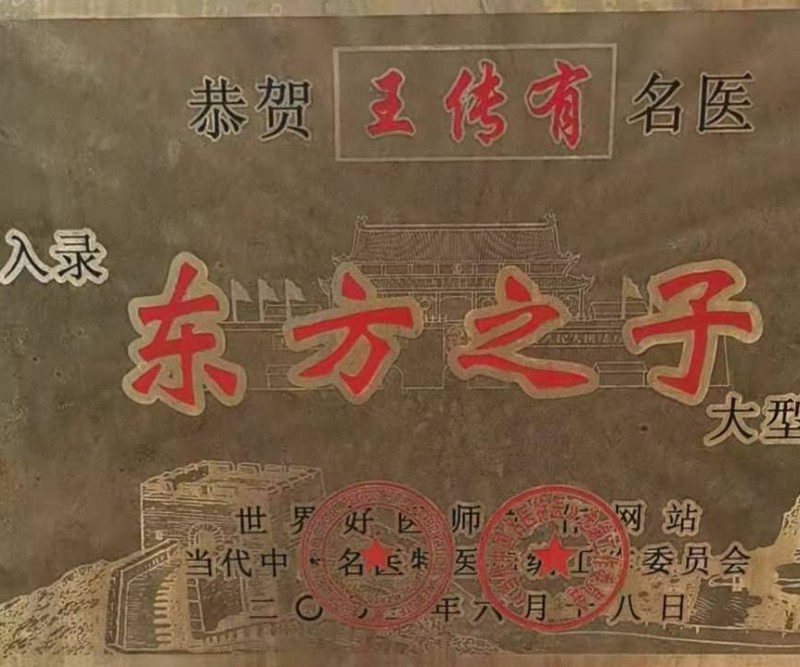 恭贺 王传有 名医
入录
东方之子
大型
世界好医师 网站
当代中 名医特医 编工作委员会
二〇 年六月十八日